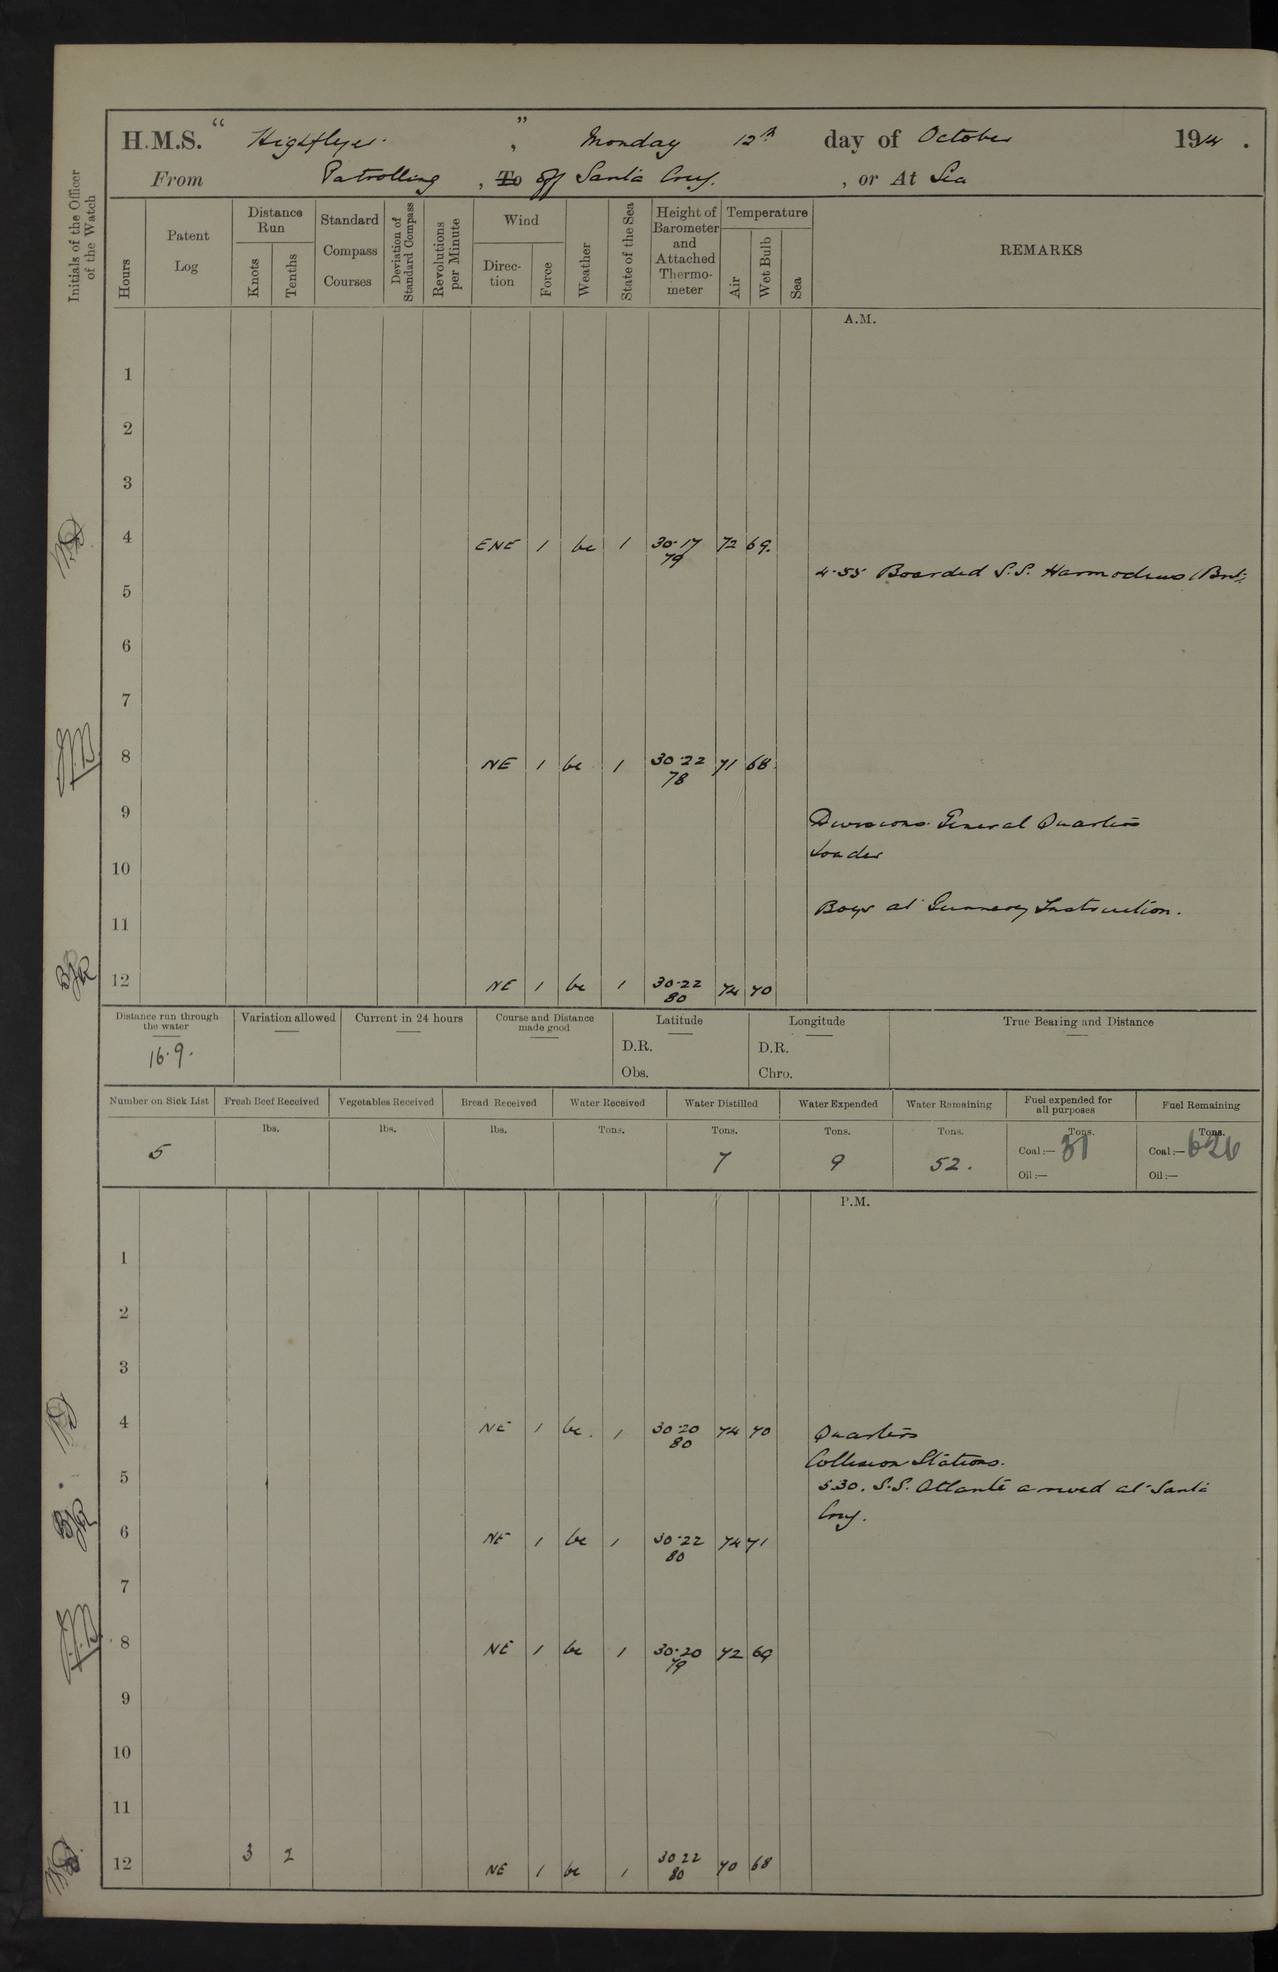 H.M.S. " Highflyer. ", Monday 12th day of October 1914.
From Patrolling, To off Santa Cruz., or At Sea
Initials of the Officer of the Watch
Hours
Patent Log
Distance Run
Knots
Tenths
Standard Compass Courses
Deviation of Standard Compass
Revolutions per Minute
Wind
Direction
Force
Weather
State of the Sea
Height of Barometer and Attached Thermometer
Temperature
Air
Wet Bulb
Sea
REMARKS
A.M.
1
2
3
4 ENE 1 bc 1 30.17 79 72 69.
4.55 Boarded S.S. Harmodius (Brit.
5
6
7
8 NE 1 bc 1 30.22 78 71 68.
9 Divisions. General Quarters
Loader
10
Boys at Gunnery Instruction.
11
12 NE 1 bc 1 30.22 80 74 70
Distance run through the water
16.9.
Variation allowed
Current in 24 hours
Course and Distance made good
Latitude
D.R.
Obs.
Longitude
D.R.
Chro.
True Bearing and Distance
Number on Sick List
5
Fresh Beef Received
lbs.
Vegetables Received
lbs.
Bread Received
lbs.
Water Received
Tons.
Water Distilled
Tons.
7
Water Expended
Tons.
9
Water Remaining
Tons.
52.
Fuel expended for all purposes
Tons.
Coal:— 31
Oil:—
Fuel Remaining
Tons.
Coal:— 626
Oil:—
P.M.
1
2
3
4 NE 1 bc. 1 30.20 80 74 70 Quarters
Collision Stations.
5 5.30. S.S. Atlante arrived at Santa
Cruz.
6 NE 1 bc 1 30.22 80 74 71
7
8 NE 1 bc 1 30.20 79 72 69
9
10
11
12 3 2 NE 1 bc 1 30 22 80 70 68